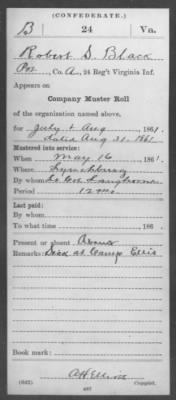 (CONFEDERATE.)
B 24 Va.
Robert S. Black
Pvt, Co. A, 24 Reg't Virginia Inf.
Appears on
Company Muster Roll
of the organization named above,
for July & Aug, 1861.
dated Aug 31, 1861
Mustered into service:
When May 16, 1861.
Where Lynchburg
By whom Lt Col Langhorne
Period 12 mo.
Last paid:
By whom
To what time, 186
Present or absent
Remarks: Died at Camp Ellis
Book mark:
(642) A H Elliott
Copyist.